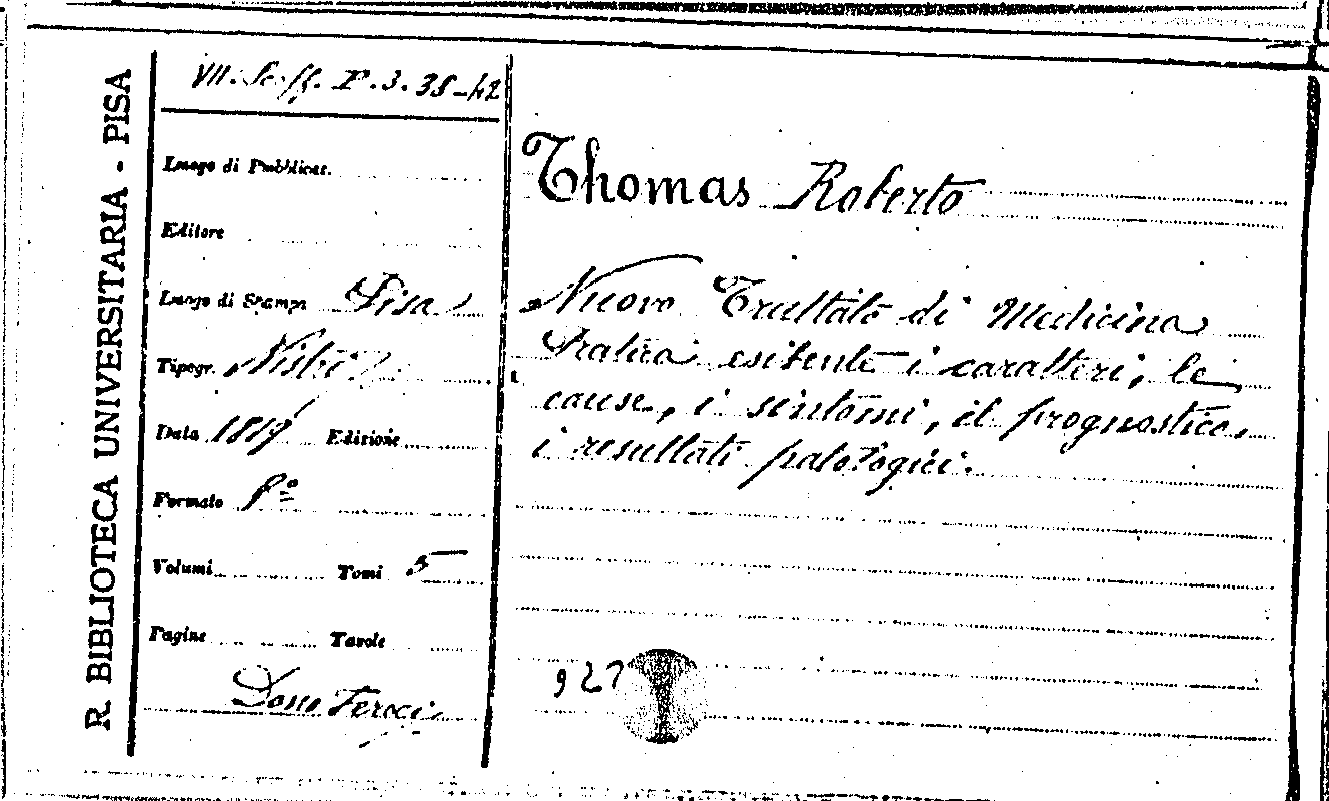 R. BIBLIOTECA UNIVERSITARIA - PISA
VII. Scaff. P. 3. 38-42
Luogo di Pubblicaz.
Editore
Luogo di Stampa Pisa
Tipogr. Nistri
Data 1819 Edizione
Formato 8º
Volumi Tomi 5
Pagine Tavole
Dono Feroci
Thomas Roberto
Nuovo Trattato di Medicina
Pratica esibente i caratteri, le
cause, i sintomi, il prognostico,
i resultati patologici.
927